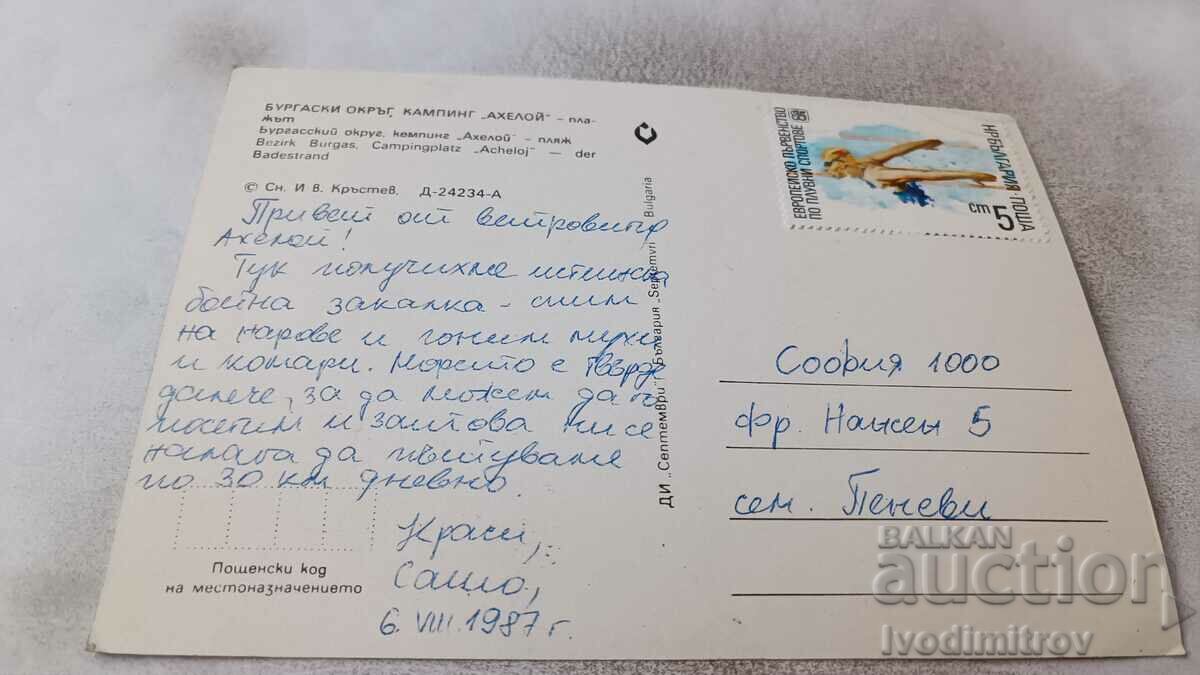 БУРГАСКИ ОКРЪГ, КАМПИНГ „АХЕЛОЙ" – пла-
жът
Бургасский округ, кемпинг „Ахелой" – пляж
Bezirk Burgas, Campingplatz „Acheloj" — der
Badestrand
© Сн. И в. Кръстев. Д-24234-А
Привет от ветровития
Ахелой!
Тук получихме истинска
бойна закалка – спим
на нарове и гоним мухи
и комари. Морето е твърде
далече, за да можем да го
посетим и затова ни се
налага да пътуваме
по 30 км дневно.
Краси,
Сашо,
6. VIII. 1987 г.
Пощенски код
на местоназначението
ДИ „Септември" България „Septemvri" Bulgaria
ЕВРОПЕЙСКО ПЪРВЕНСТВО
ПО ПЛУВНИ СПОРТОВЕ
НР БЪЛГАРИЯ · ПОЩА
5 ст
София 1000
фр. Нансен 5
сем. Пеневи
BALKAN
auction
Ivodimitrov